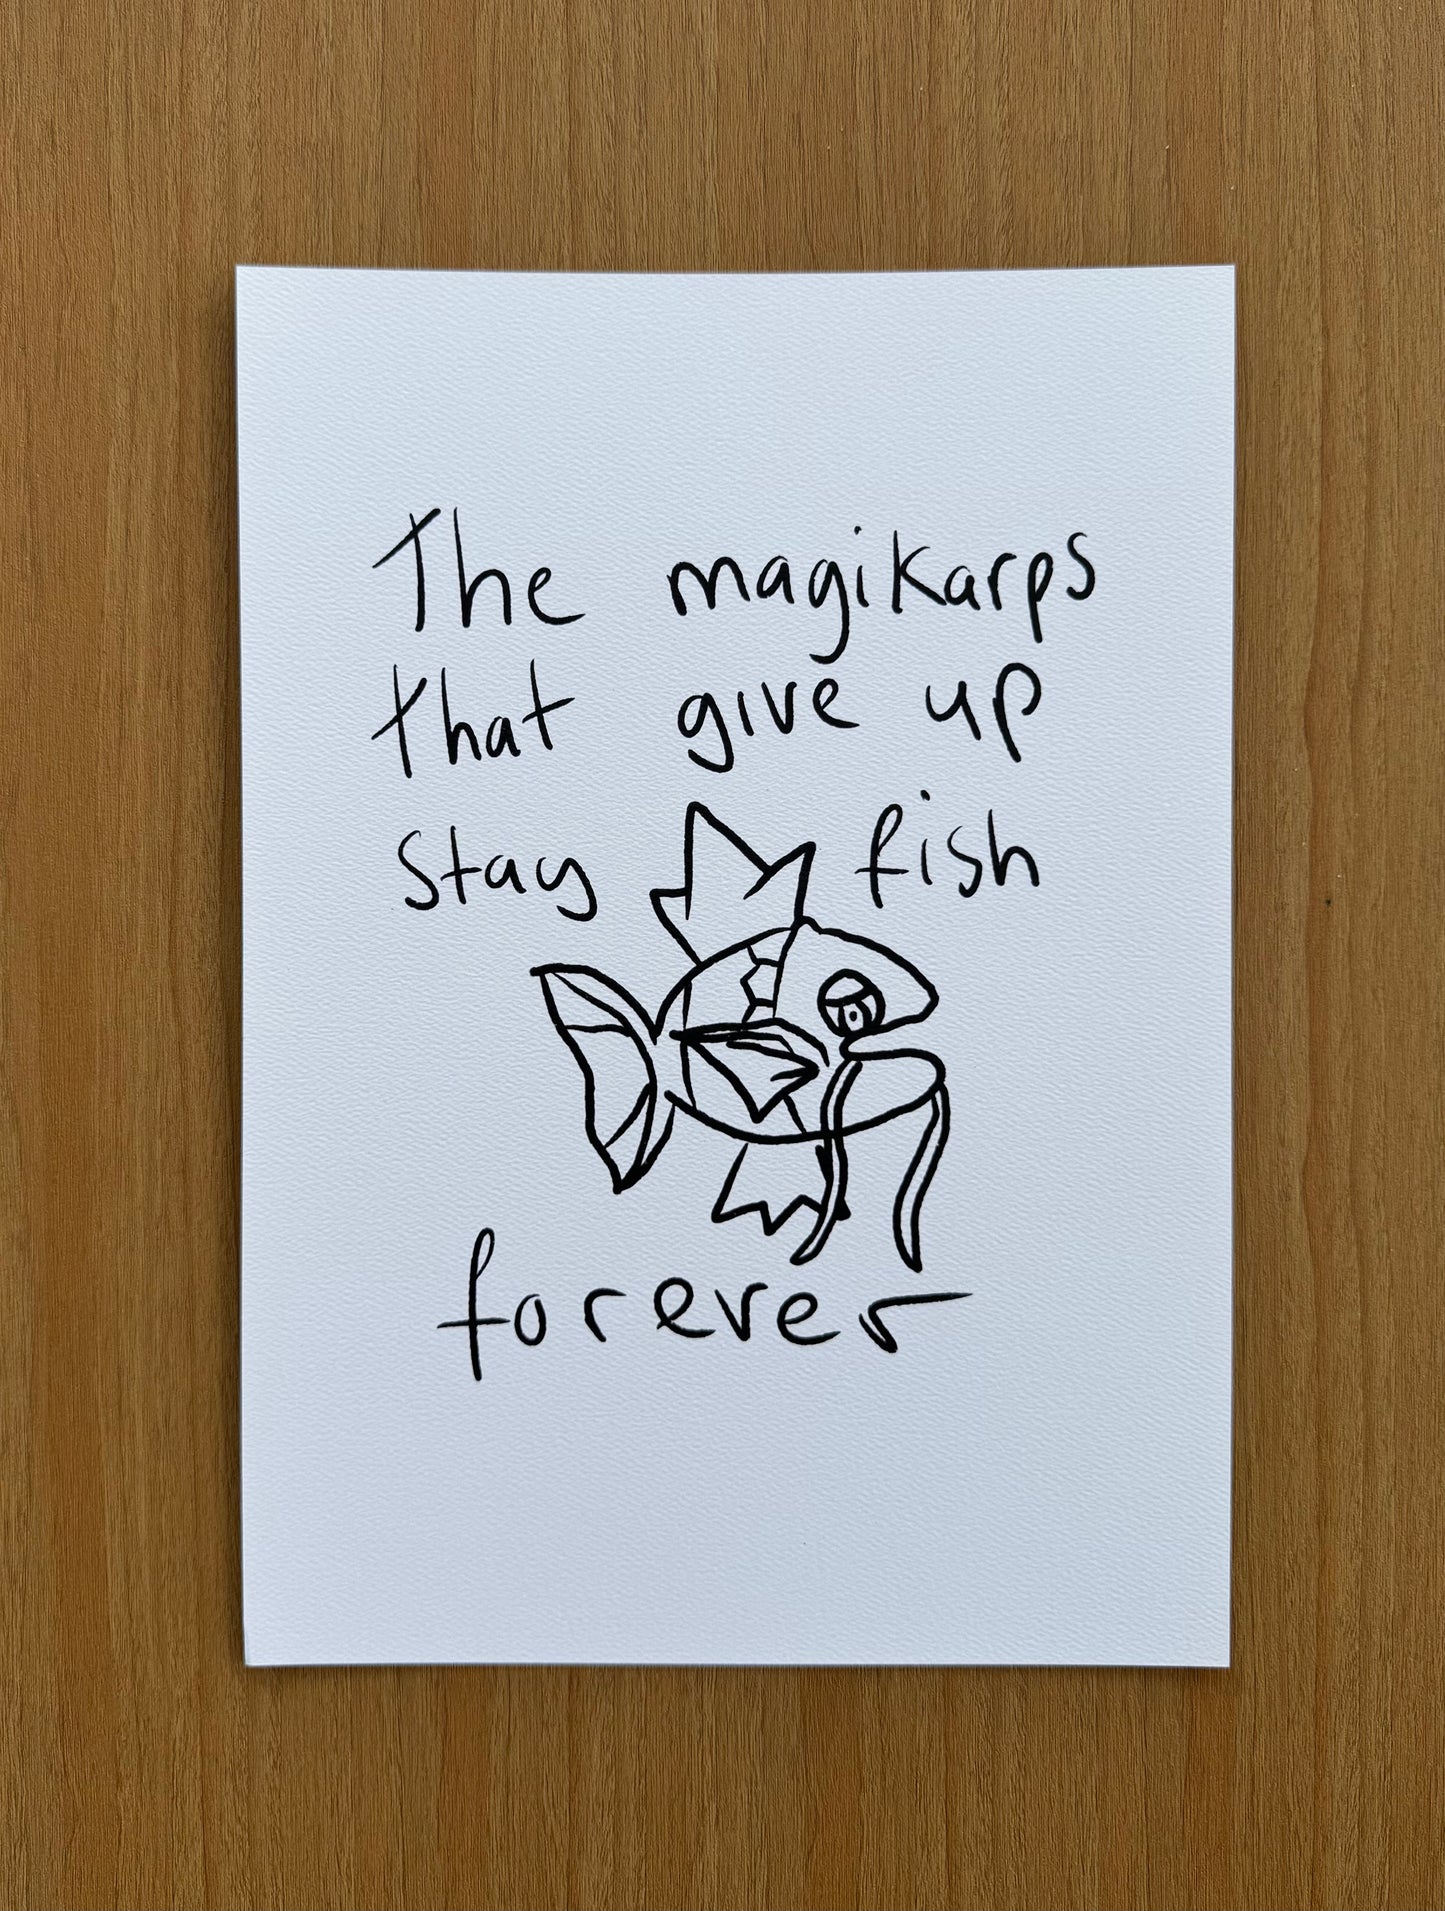 The magikarps
that give up
stay fish
forever